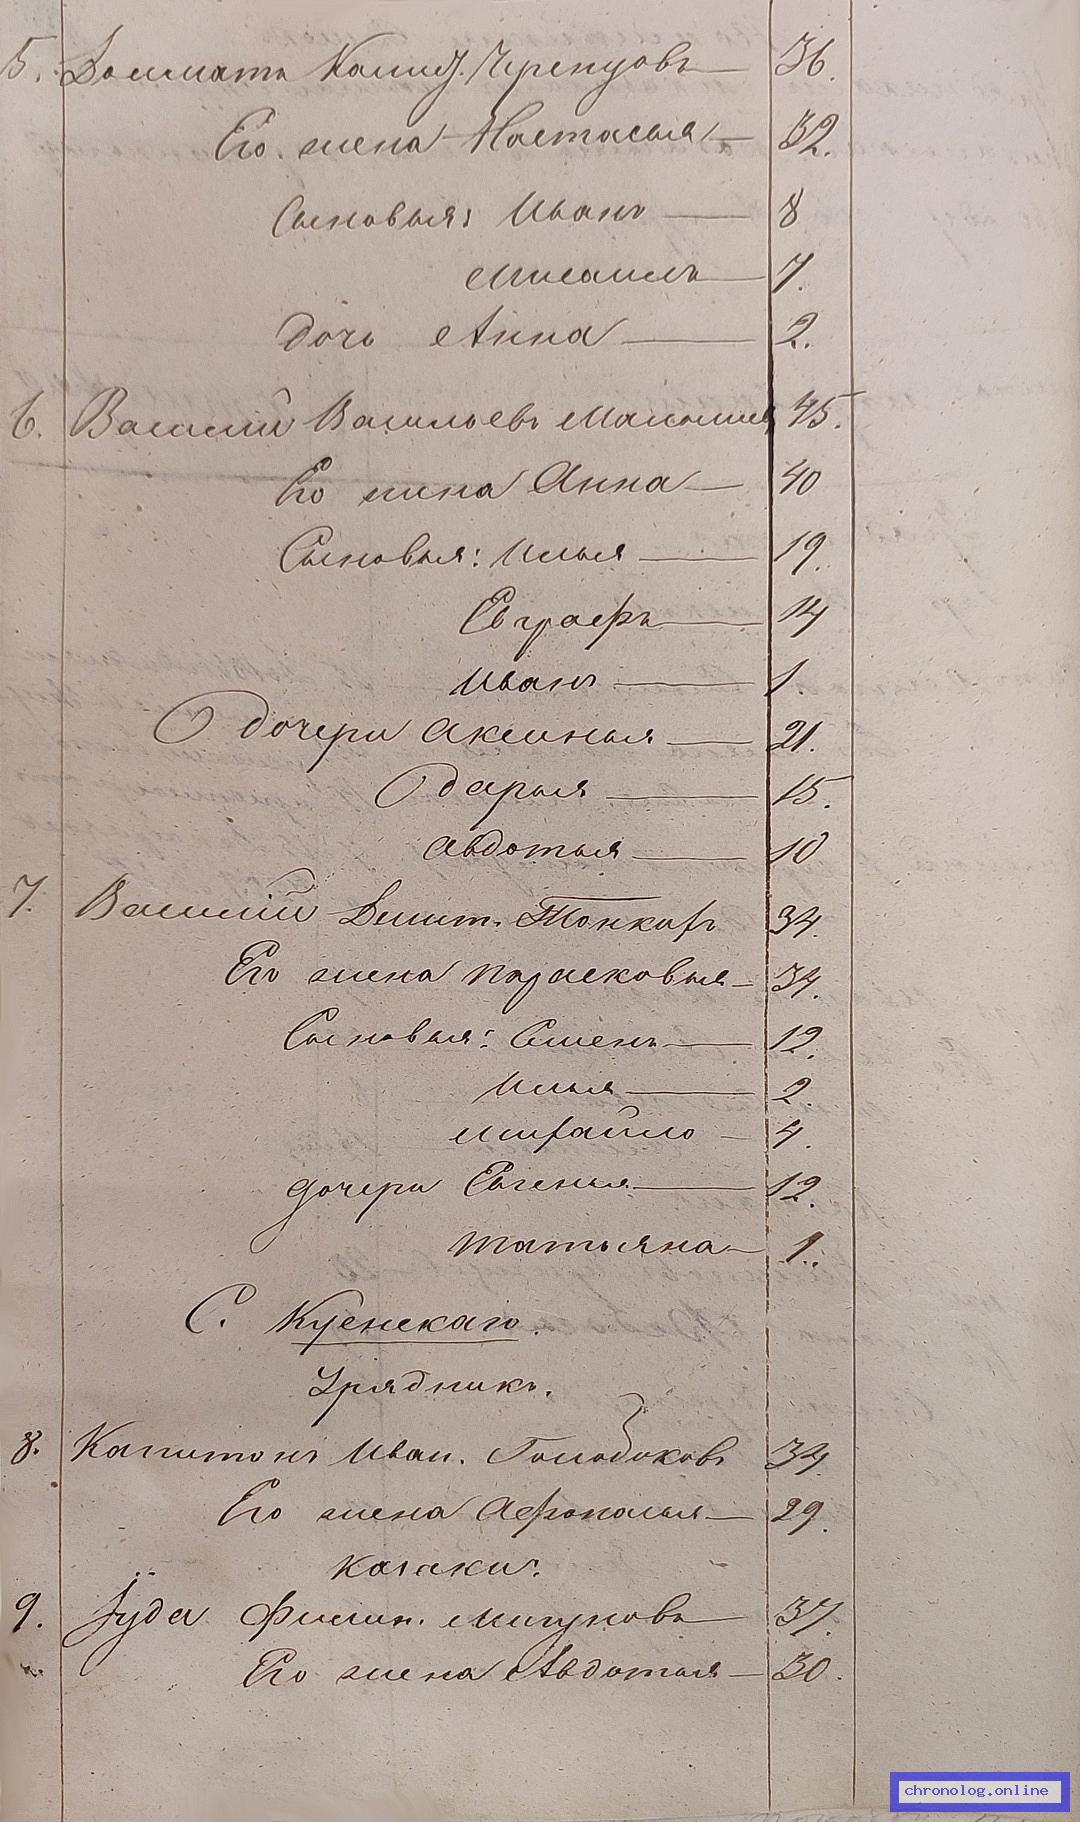 5. Долматъ Калист. Черепцовъ — 36.
Его жена Настасья — 32.
Сыновья: Иванъ — 8
Михаилъ — 7.
дочь Анна — 2.
6. Василий Васильевъ 45.
Его жена Анна — 40
Сыновья: Илья — 19.
Евграфъ — 14
Иванъ — 1.
дочери Аксинья — 21.
Дарья — 15.
Авдотья — 10
7. Василій Дмит. Тонкихъ 34.
Его жена Парасковья — 34.
Сыновья: Семенъ — 12.
Илья — 2.
Михайло — 4.
дочери Евгенья — 12.
Татьяна — 1.
С. Куенскаго.
Урядникъ.
8. Капитонъ Иван. Голобоковъ 34.
Его жена Афонасья — 29.
казаки:
9. Іуда Филип. Мигуновъ — 37.
Его жена Авдотья — 30.
chronolog.online